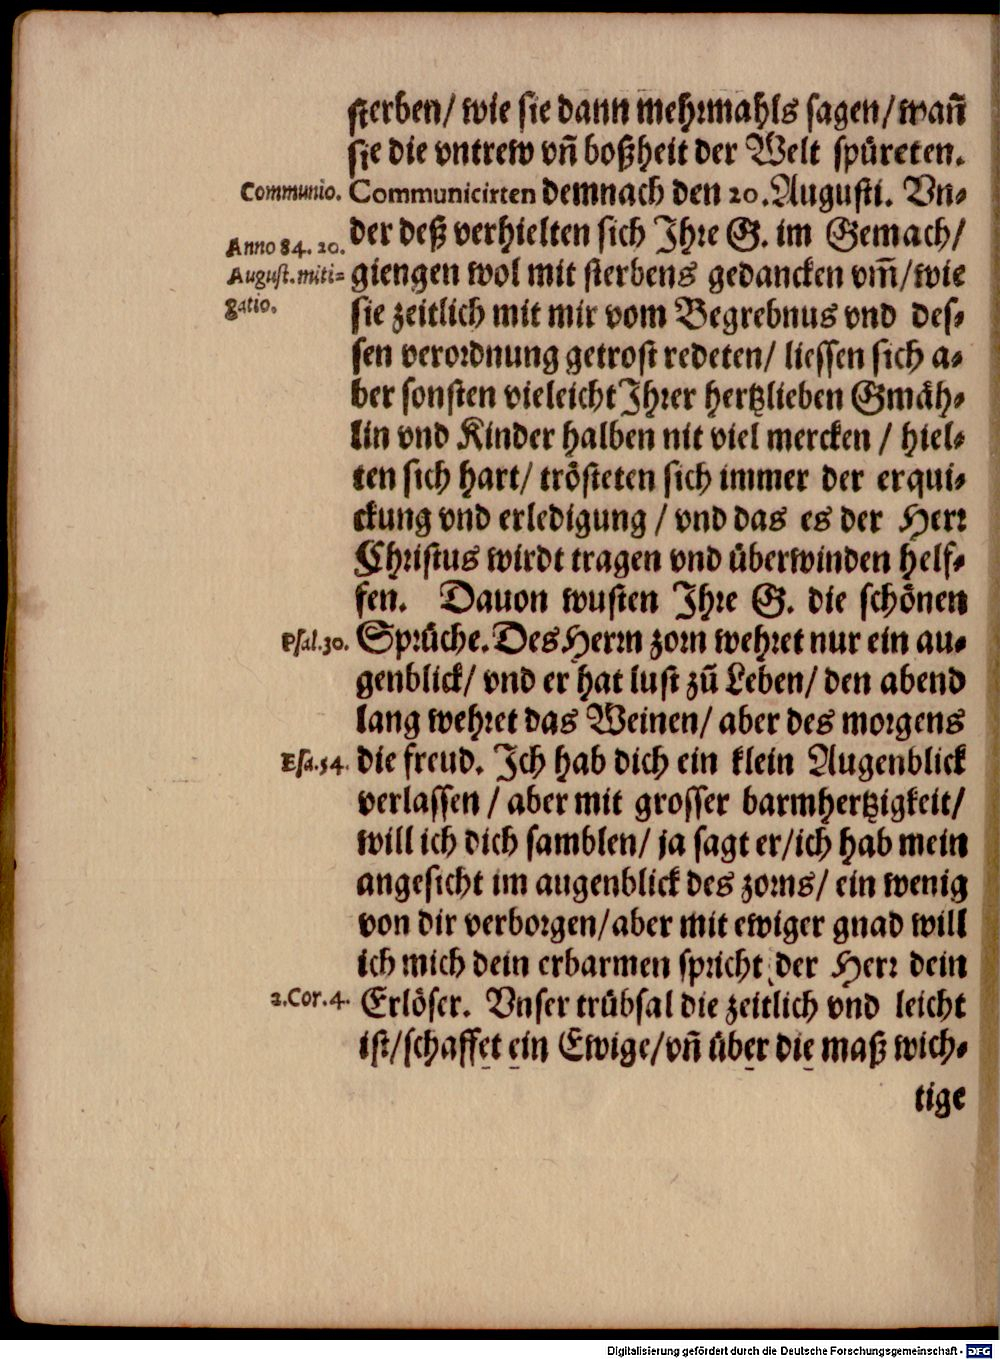 sterben/ wie sie dann mehrmahls sagen/ wañ
sie die vntrew vñ boßheit der Welt spüreten.
Communio.
Communicirten demnach den 20. Augusti. Vn-
Anno 84. 20.
August. miti-
gatio.
der deß verhielten sich Ihre G. im Gemach/
giengen wol mit sterbens gedancken vm̄/ wie
sie zeitlich mit mir vom Begrebnus vnd des-
sen verordnung getrost redeten/ liessen sich a-
ber sonsten vieleicht Ihrer hertzlieben Gmäh-
lin vnd Kinder halben nit viel mercken / hiel-
ten sich hart/ trösteten sich immer der erqui-
ckung vnd erledigung / vnd das es der Herr
Christus wirdt tragen vnd überwinden helf-
fen. Dauon wusten Ihre G. die schönen
Psal. 30.
Sprüche. Des Herrn zorn wehret nur ein au-
genblick/ vnd er hat lust zū Leben/ den abend
lang wehret das Weinen/ aber des morgens
Esa. 54.
die freud. Ich hab dich ein klein Augenblick
verlassen / aber mit grosser barmhertzigkeit/
will ich dich samblen/ ja sagt er/ ich hab mein
angesicht im augenblick des zorns/ ein wenig
von dir verborgen/ aber mit ewiger gnad will
ich mich dein erbarmen spricht der Herr dein
2. Cor. 4.
Erlöser. Vnser trübsal die zeitlich vnd leicht
ist/ schaffet ein Ewige/ vñ über die maß wich-
tige
Digitalisierung gefördert durch die Deutsche Forschungsgemeinschaft - DFG